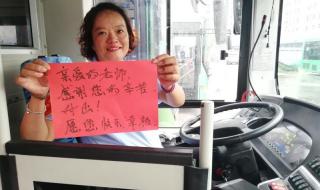 亲爱的老师,
感谢您的辛苦
付出!
愿您,快乐幸福